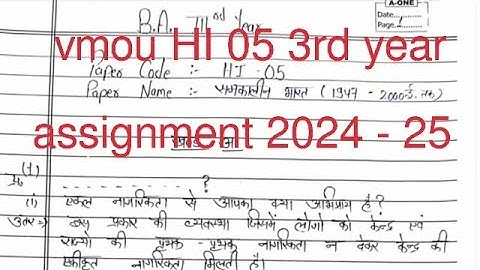 A-ONE
Date
Page 1
B.A. IIIrd Year
vmou HI 05 3rd year
Paper Code :- HI - 05
Paper Name :- समकालीन भारत (1947 - 2000 ई. तक)
assignment 2024 - 25
(1)
- - - - - - - - - ?
(i) एकल नागरिकता से आपका क्या अभिप्राय है?
उत्तर⇒ इस प्रकार की व्यवस्था जिसमें लोगों को केन्द्र एवं
राज्यों की पृथक - पृथक नागरिकता न देकर केन्द्र की
एकीकृत नागरिकता मिलती है।